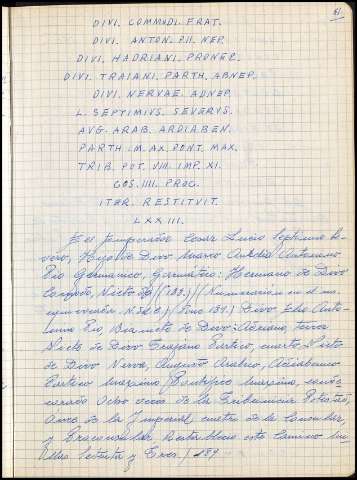 61
DIVI. COMMODI. FRAT.
DIVI. ANTON. PII. NEP.
DIVI. HADRIANI. PRONEP.
DIVI. TRAIANI. PARTH. ABNEP.
DIVI. NERVAE. ADNEP.
L. SEPTIMIUS. SEVERVS.
AVG. ARAB. ARDIABEN.
PARTH. M. AX. PONT. MAX.
TRIB. POT. VIII. IMP. XI.
COS. IIII. PROC.
ITER. RESTITVIT.
LXXIII.
El emperador Cesar Lucio Septimio Se-
vero, Hijo de Divo Marco Antonino
Pio Germanico, Hermano de Divo
Comodo, Nieto de (183.) (Numeracion en el ma-
N. del E.) Divo, Anto-
nino Pio, Bisnieto de Divo Adriano,
Nieto de Divo Trajano Partico, cuarto Nieto
de Divo Nerva, Augusto Arabico, Adiabenico
Partico Maximo, Pontifice Maximo,
ocho veces de la Tribunicia Potestad,
once de la Imperial, cuatro de la Consular,
y Proconsular, este camino
Millas Setenta y Tres. 189